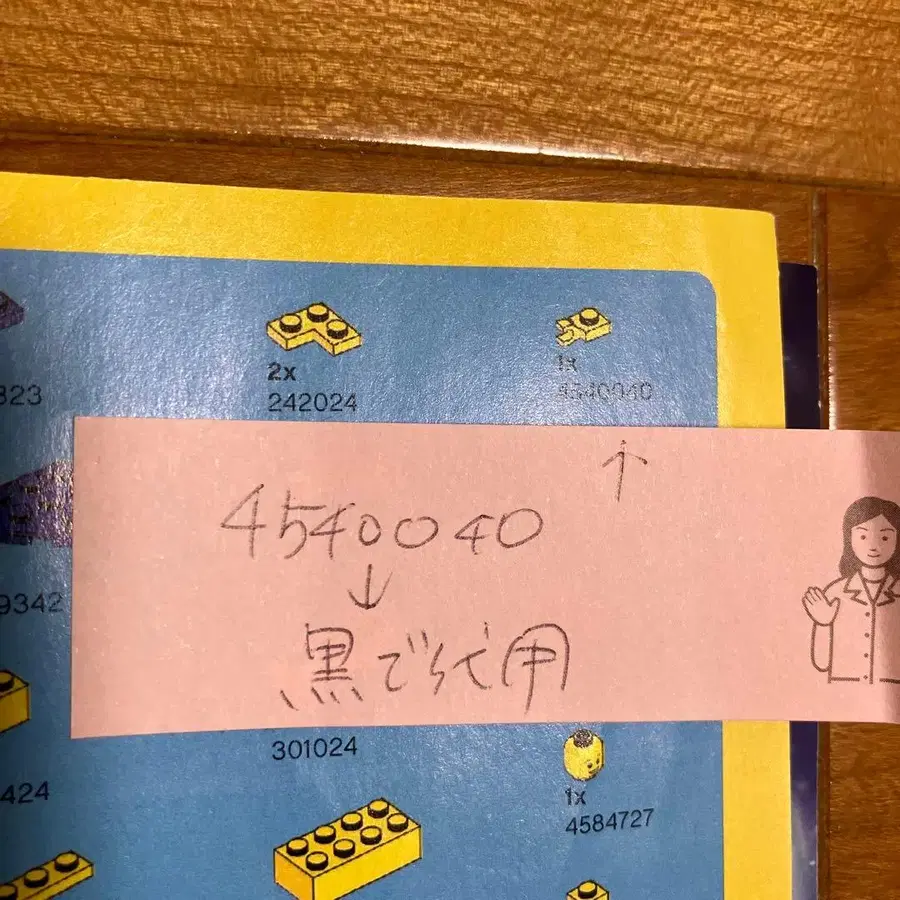 323
2x
242024
1x
4540040
↑
4540040
↓
黒で代用
9342
301024
424
1x
4584727